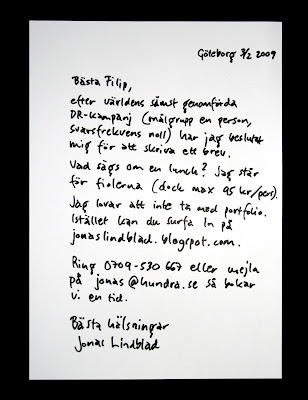 Göteborg 3/2 2009
Bästa Filip,
efter världens sämst genomförda
DR-kampanj (målgrupp en person,
svarsfrekvens noll) har jag beslutat
mig för att skriva ett brev.
Vad sägs om en lunch? Jag står
för fiolerna (dock max 95 kr/pers).
Jag lovar att inte ta med portfolio.
Istället kan du surfa in på
jonaslindblad.blogspot.com.
Ring 0709-530 667 eller mejla
på jonas@hundra.se så bokar
vi en tid.
Bästa hälsningar
Jonas Lindblad